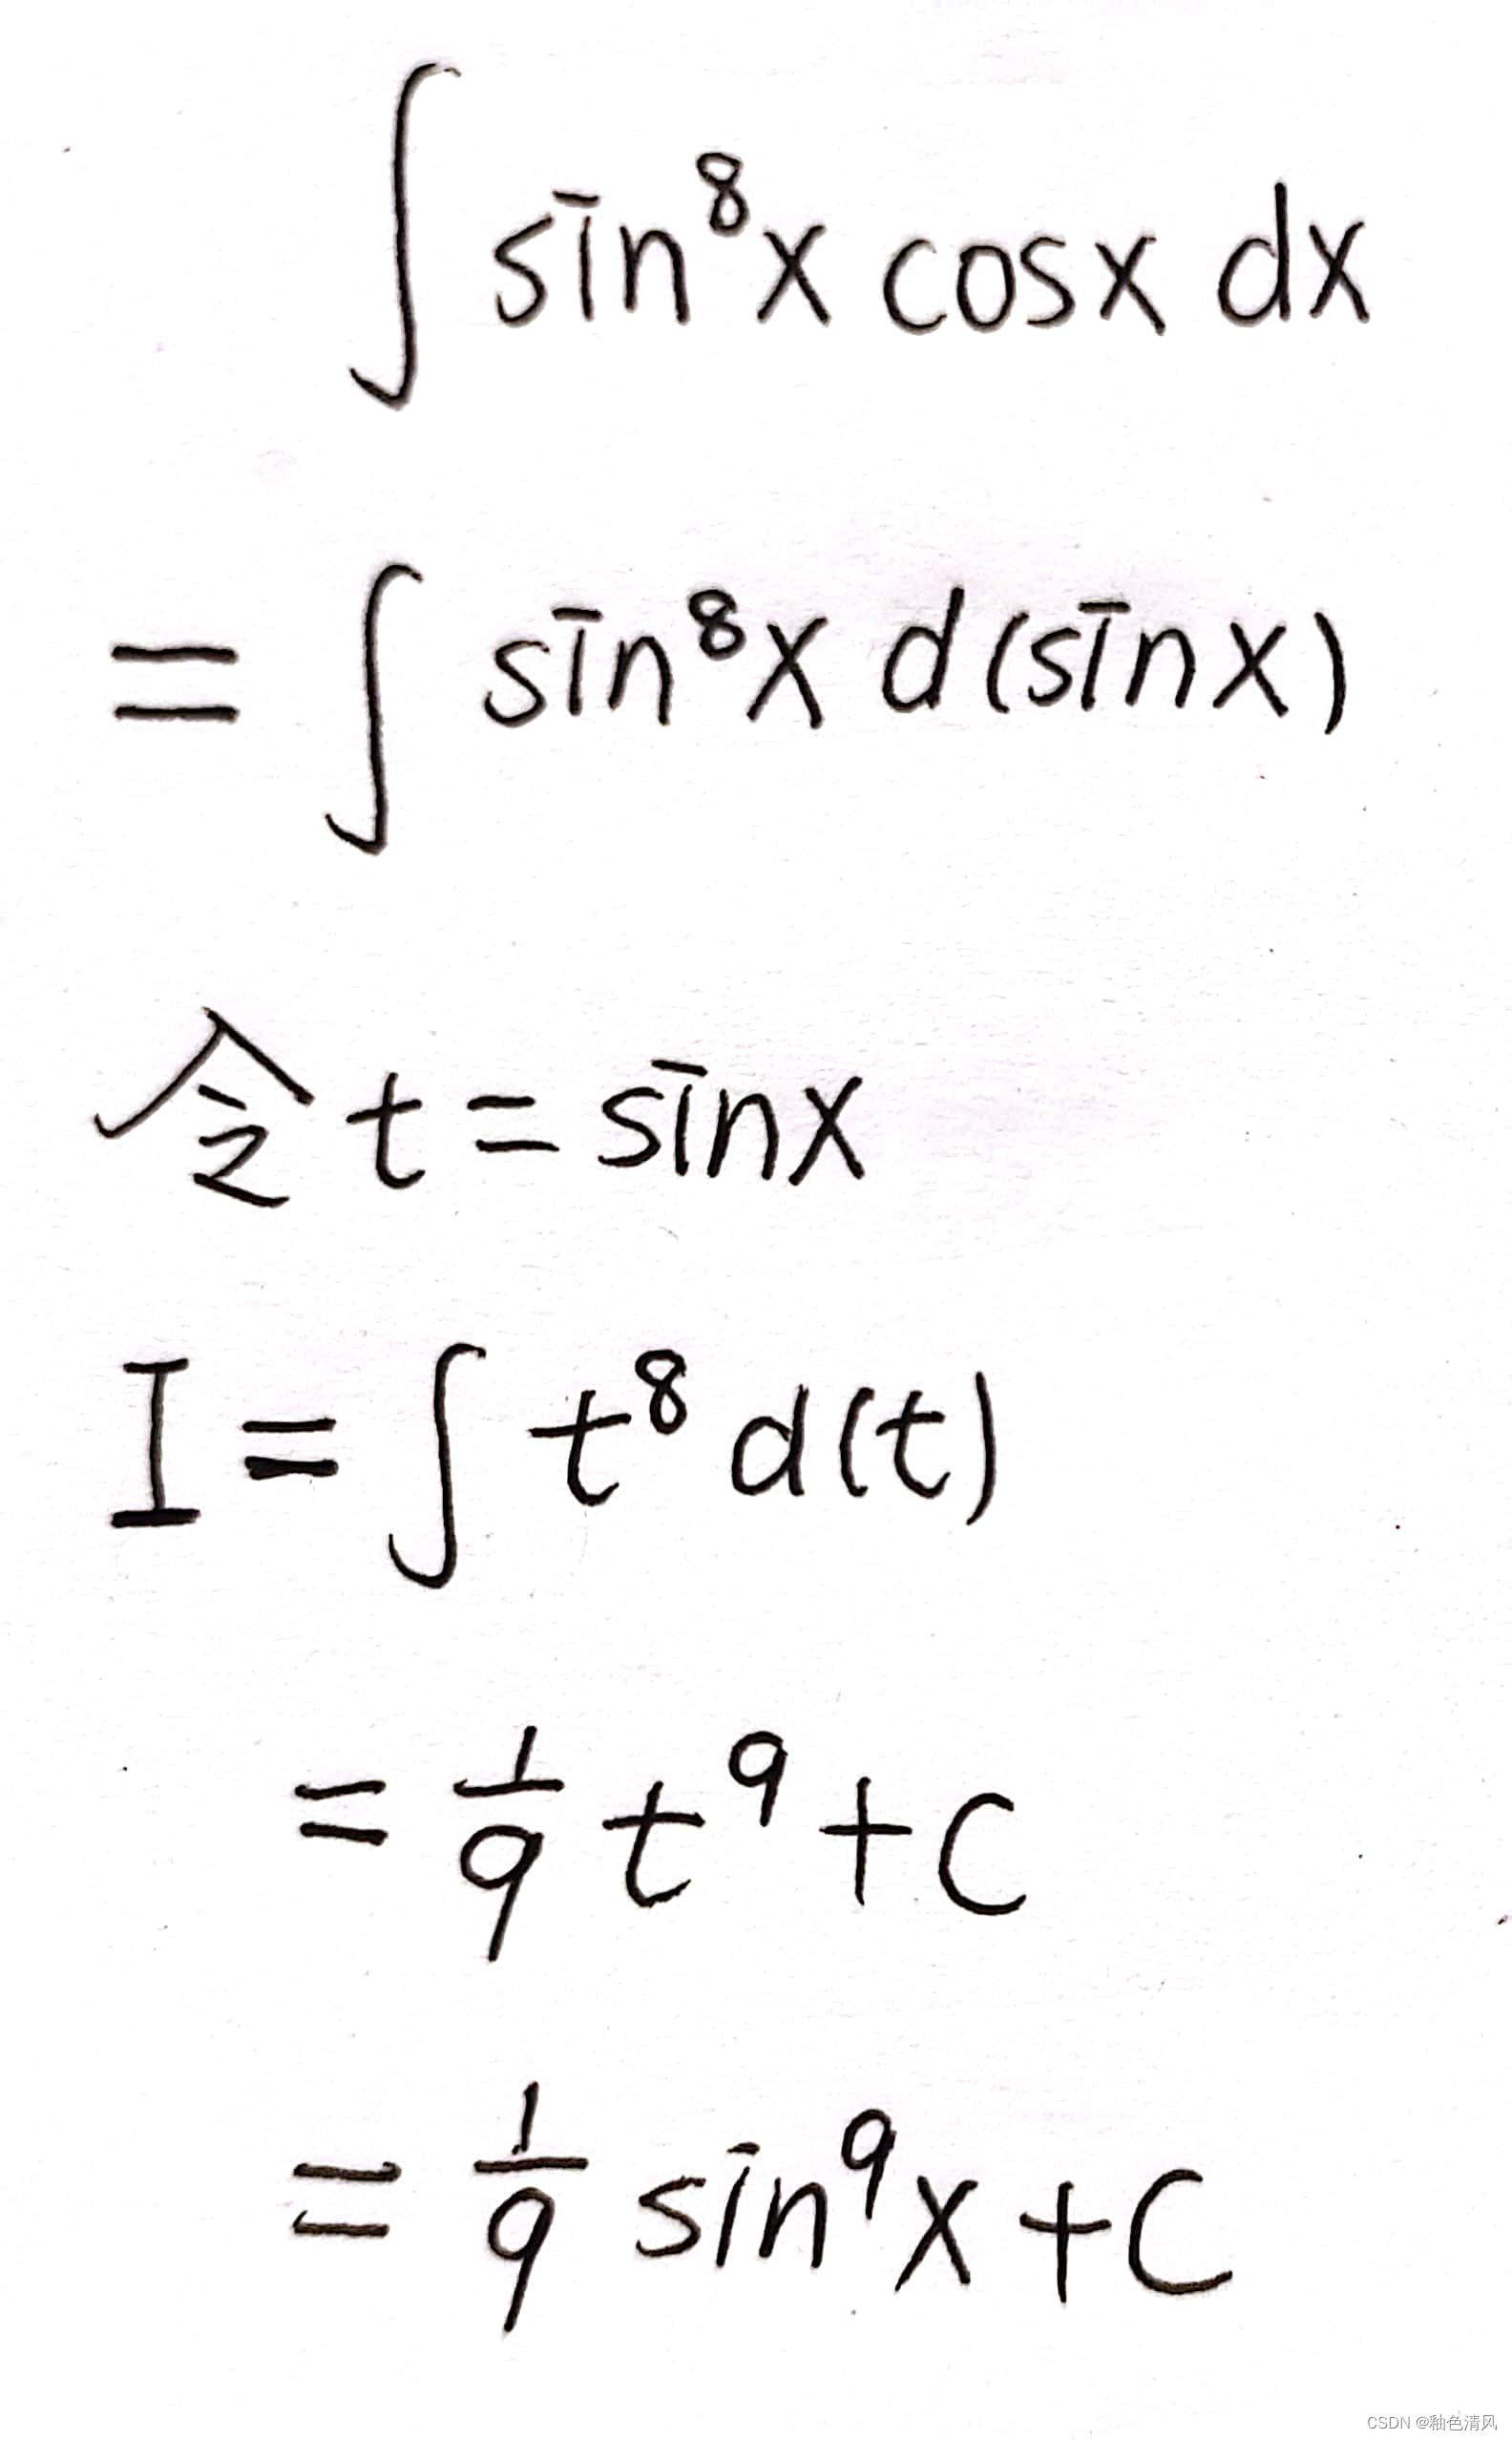 ∫ sin⁸x cosx dx
= ∫ sin⁸x d(sinx)
令 t = sinx
I = ∫ t⁸ d(t)
= 1/9 t⁹ + C
= 1/9 sin⁹x + C
CSDN @釉色清风